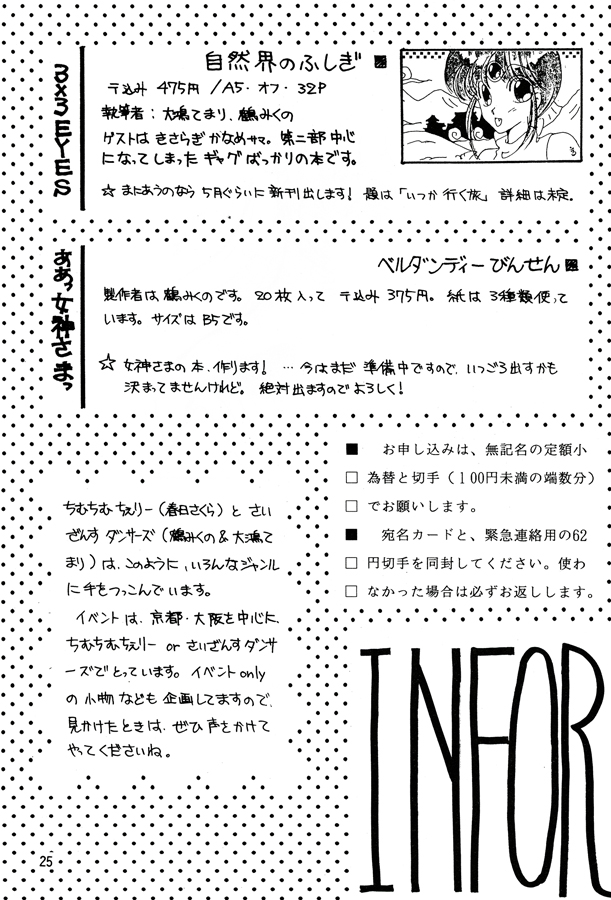 3×3 EYES
自然界のふしぎ
〒込み 475円 /A5・オフ・32P
執筆者：大嶋てまり、鶴みくの
ゲストは きさらぎ かなめサマ。第二部 中心
になってしまった ギャグ ばっかりの本です。
☆ まにあうのなら 5月ぐらいに 新刊出します! 題は「いつか 行く旅」 詳細は未定。
ああっ女神さまっ
ベルダンディー びんせん
製作者は 鶴みくのです。 20枚入って 〒込み 375円。 紙は 3種類使って
います。 サイズは B5です。
☆ 女神さまの 本、作ります! …今はまだ 準備中ですので、いつごろ出すかも
決まってませんけれど。 絶対出ますので よろしく!
■ お申し込みは、無記名の定額小
□ 為替と切手（100円未満の端数分）
□ でお願いします。
■ 宛名カードと、緊急連絡用の62
□ 円切手を同封してください。使わ
□ なかった場合は必ずお返しします。
ちむちむちぇりー（春日さくら）と さい
ざんす ダンサーズ（鶴みくの & 大嶋て
まり）は、このように、いろんなジャンル
に手をつっこんでいます。
イベントは、京都・大阪を中心に、
ちむちむちぇりー or さいざんすダンサ
ーズでとっています。イベント only
の 小物 なども 企画してますので、
見かけたときは、ぜひ 声をかけて
やってくださいね。
INFOR
25